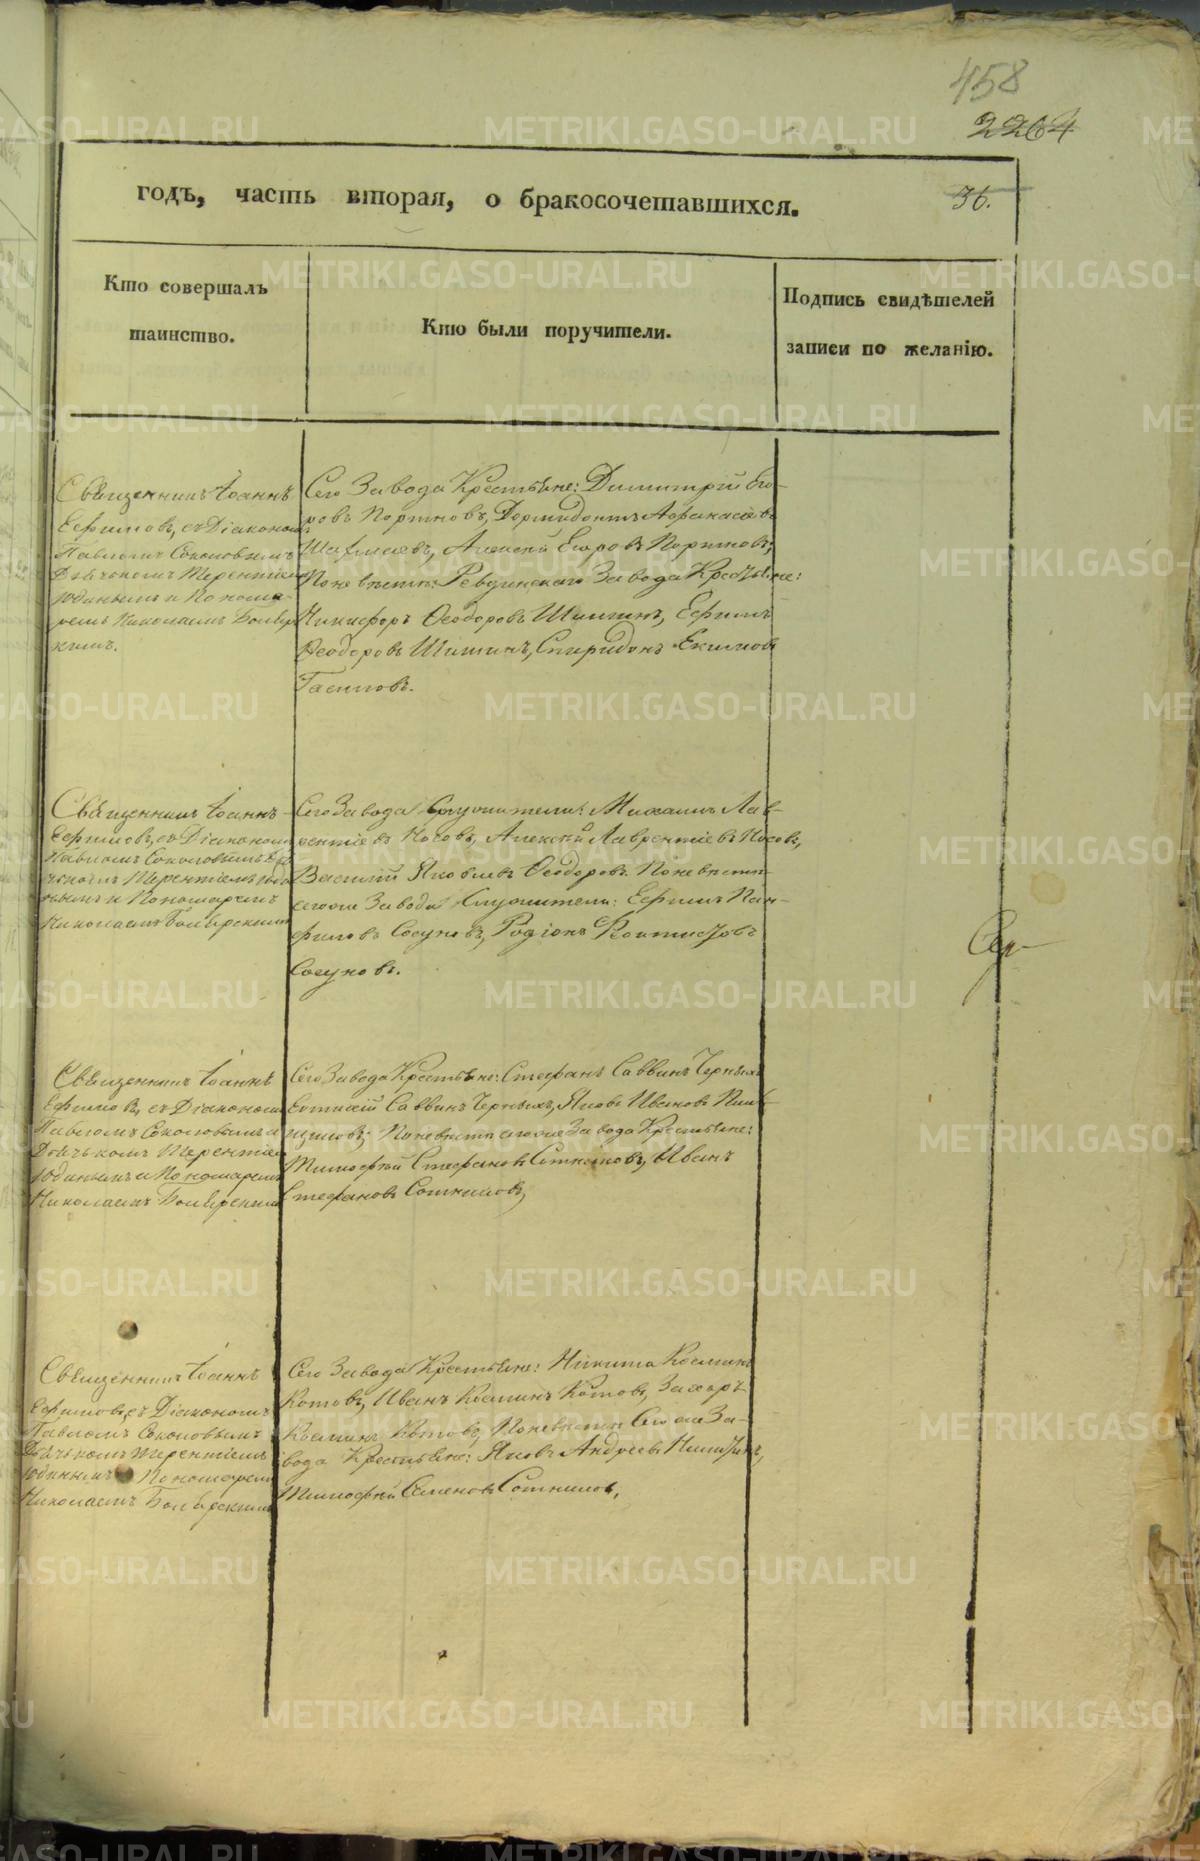 458
2264
годъ, часть вторая, о бракосочетавшихся.
36.
Кто совершалъ
таинство.
Кто были поручители.
Подпись свидѣтелей
записи по желанію.
Священникъ Іоаннъ
Ефимовъ, съ Діакономъ
Павломъ Соколовымъ
Дьячькомъ Терентіемъ
Юдинымъ и Понома-
ремъ Николаемъ
кимъ.
Сего Завода Крестьяне: Димитрій Его-
ровъ Портновъ, Дормидонтъ Афанасіевъ
Алексѣй Егоровъ Портновъ;
Поневѣстѣ: Ревдинскаго Завода Крестьяне:
Никифоръ Ѳеодоровъ Шишинъ, Ефимъ
Ѳеодоровъ Шишинъ, Спиридонъ Екимовъ
Гасиловъ.
Священникъ Іоаннъ
Ефимовъ, съ Діакономъ
Павломъ Соколовымъ Дья
чькомъ Терентіемъ Юди
нымъ и Пономаремъ
Николаемъ
Сего Завода Служители: Михаилъ Лав-
рентіевъ Носовъ, Алексѣй Лаврентіевъ Носовъ,
Василій Яковлевъ Ѳеодоровъ. Поневѣстѣ
сегоже Завода Служители: Ефимъ Пан-
филовъ Сосуновъ, Родіонъ
Сосуновъ.
Священникъ Іоаннъ
Ефимовъ, съ Діакономъ
Павломъ Соколовымъ
Дьячькомъ Терентіемъ
Юдинымъ и Пономаремъ
Николаемъ
Сего Завода Крестьяне: Стефанъ Саввинъ Черныхъ
Саввинъ Черныхъ, Яковъ Ивановъ
Поневѣстѣ сегоже Завода Крестьяне:
Тимофѣй Стефановъ Сотниковъ, Иванъ
Стефановъ Сотниковъ,
Священникъ Іоаннъ
Ефимовъ, съ Діакономъ
Павломъ Соколовымъ
Дьячькомъ Терентіемъ
Юдинымъ и Пономаремъ
Николаемъ
Сего Завода Крестьяне: Никита Козминъ
Котовъ, Иванъ Козминъ Котовъ, Захаръ
Козминъ Котовъ, Поневѣстѣ Сегоже За-
вода Крестьяне: Яковъ Андреевъ
Тимофѣй Семеновъ Сотниковъ,
METRIKI.GASO-URAL.RU